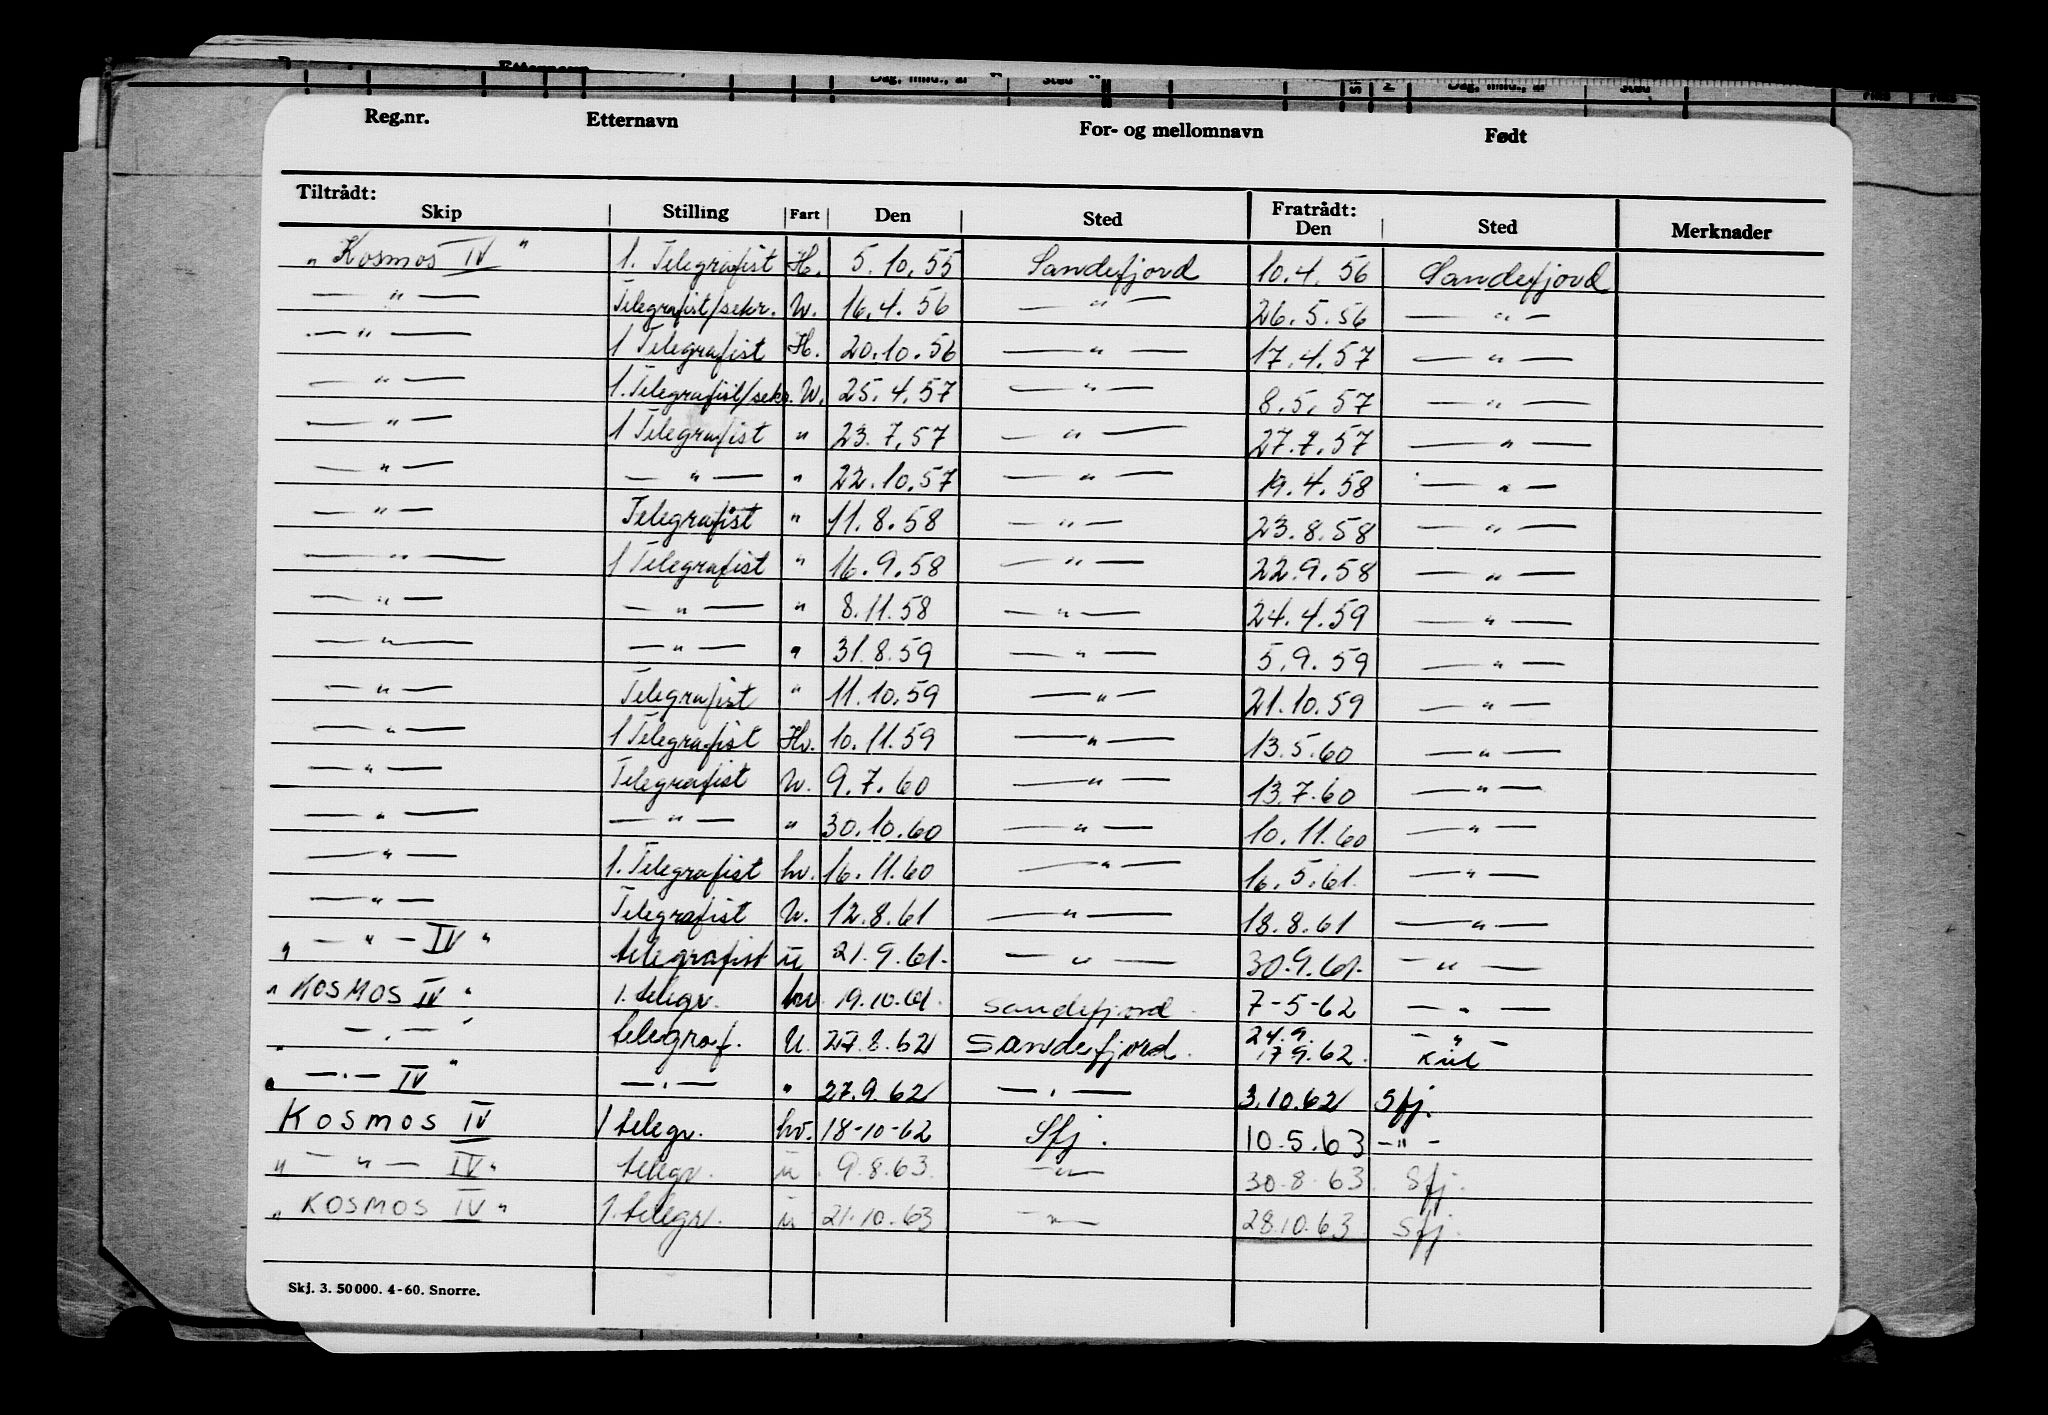 Etternavn
Dag, mnd., år Sted Dag, mnd., år Sted
Reg.nr. Etternavn For- og mellomnavn Født
Tiltrådt: Fratrådt:
Skip Stilling Fart Den Sted Den Sted Merknader
„Kosmos IV" 1. Telegrafist H. 5.10.55 Sandefjord 10.4.56 Sandefjord
—"— Telegrafist/sekr. U. 16.4.56 —"— 26.5.56 —"—
—"— 1 Telegrafist H. 20.10.56 —"— 17.4.57 —"—
—"— 1. Telegrafist/sekr. U. 25.4.57 —"— 8.5.57 —"—
—"— 1 Telegrafist " 23.7.57 —"— 27.7.57 —"—
—"— —"— " 22.10.57 —"— 19.4.58 —"—
—"— Telegrafist " 11.8.58 —"— 23.8.58 —"—
—"— 1 Telegrafist " 16.9.58 —"— 22.9.58 —"—
—"— —"— " 8.11.58 —"— 24.4.59 —"—
—"— —"— " 31.8.59 —"— 5.9.59 —"—
—"— Telegrafist " 11.10.59 —"— 21.10.59 —"—
—"— 1 Telegrafist Hv. 10.11.59 —"— 13.5.60 —"—
—"— Telegrafist U. 9.7.60 —"— 13.7.60 —"—
—"— —"— " 30.10.60 —"— 10.11.60 —"—
—"— 1. Telegrafist hv. 16.11.60 —"— 16.5.61. —"—
—"— Telegrafist U. 12.8.61 —"— 18.8.61 —"—
„—"— IV" telegrafist u 21.9.61. —"— 30.9.61. —"—
„KOSMOS IV" 1. telegr. hv. 19.10.61 Sandefjord. 7-5-62 —"—
„—"—" telegraf. U. 27.8.62 Sandefjord. 24.9. —"—
17.9.62. Kiel
„—"— IV" —"— " 27.9.62 —"— 3.10.62 Sfj.
KOSMOS IV 1 telegr. hv. 18-10-62 Sfj. 10.5.63 —"—
„—"— IV" telegr. u 9.8.63. —"— 30.8.63. Sfj.
„KOSMOS IV" 1. telegr. u 21.10.63 —"— 28.10.63 Sfj.
Skj. 3. 50000. 4-60. Snorre.